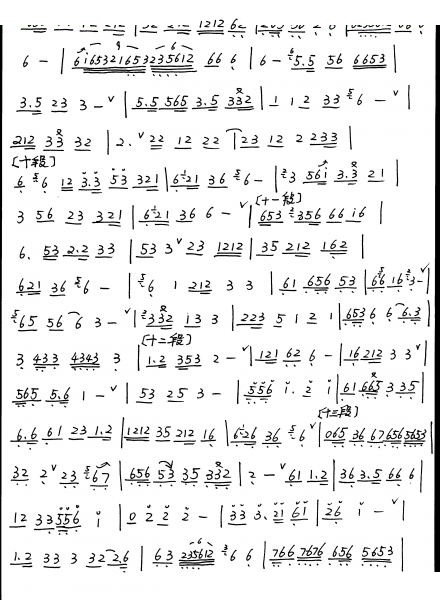 6 - | 6i65321653235612 66 6 | 6 - 5.5 56 6653
3.5 23 3 - ˅ | 5.5 565 3.5 332 | 1 1 2 33 6 - ˅ |
212 33 32 | 2. ˅ 22 12 22 | 23 12 2 233 |
[十段]
6 6 12 3.3 53 321 | 6 21 36 6 - | 3 56i 3.3 21 |
[十一段]
3 56 23 321 | 6 21 36 6 - ˅ | 653 356 66 i6 |
6. 53 2.2 33 | 53 3 ˅ 23 1212 | 35 212 162 |
621 36 6 - | 6 1 212 3 3 | 61 656 53 | 66 16 3 - ˅
65 56 6 3 - ˅ | 332 13 3 | 223 5 1 2 1 | 653 6 6 6.3 |
[十二段]
3 433 4343 3 | 1.2 353 2 - ˅ | 121 62 6 - | 16 212 3 3 ˅ |
565 5.6 1 - ˅ | 53 25 3 - | 556 i. 2 i | 61 665 3 35 |
[十三段]
6.6 61 23 1.2 | 1212 35 212 16 | 626 36 6 ˅ | 065 36 67656 5653 |
32 2 ˅ 23 67 | 656 53 35 332 | 2 - ˅ 61 1.2 | 36 3.5 66 6 |
12 33 556 i | 0 2 2 2 - | 33 3. 21 61 | 26 i - ˅ |
1.2 33 3 32 2.6 | 63 235612 6 6 | 766 7676 656 5653 |